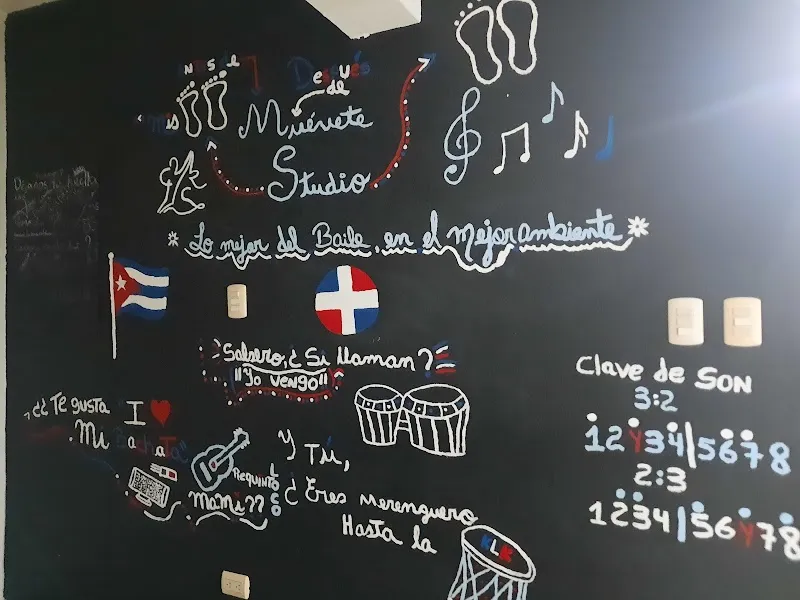 Después
de
Muévete
Studio
* Lo mejor del Baile, en el mejor ambiente *
Salsero, ¿Si llaman?
"Yo vengo"
¿¿Te gusta
I
Mi Bachata"
Requinto
LOCO
MaMi??
Y Tú,
¿Eres merenguero
Hasta la
KLK
Clave de SON
3:2
12Y34|5678
2:3
1234|56Y78